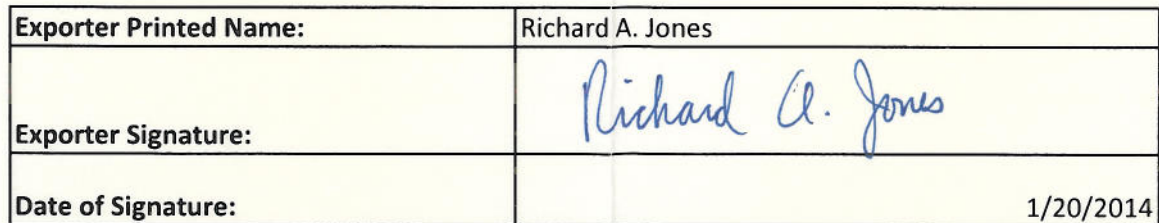 Exporter Printed Name: Richard A. Jones
Exporter Signature: Richard A. Jones
Date of Signature: 1/20/2014